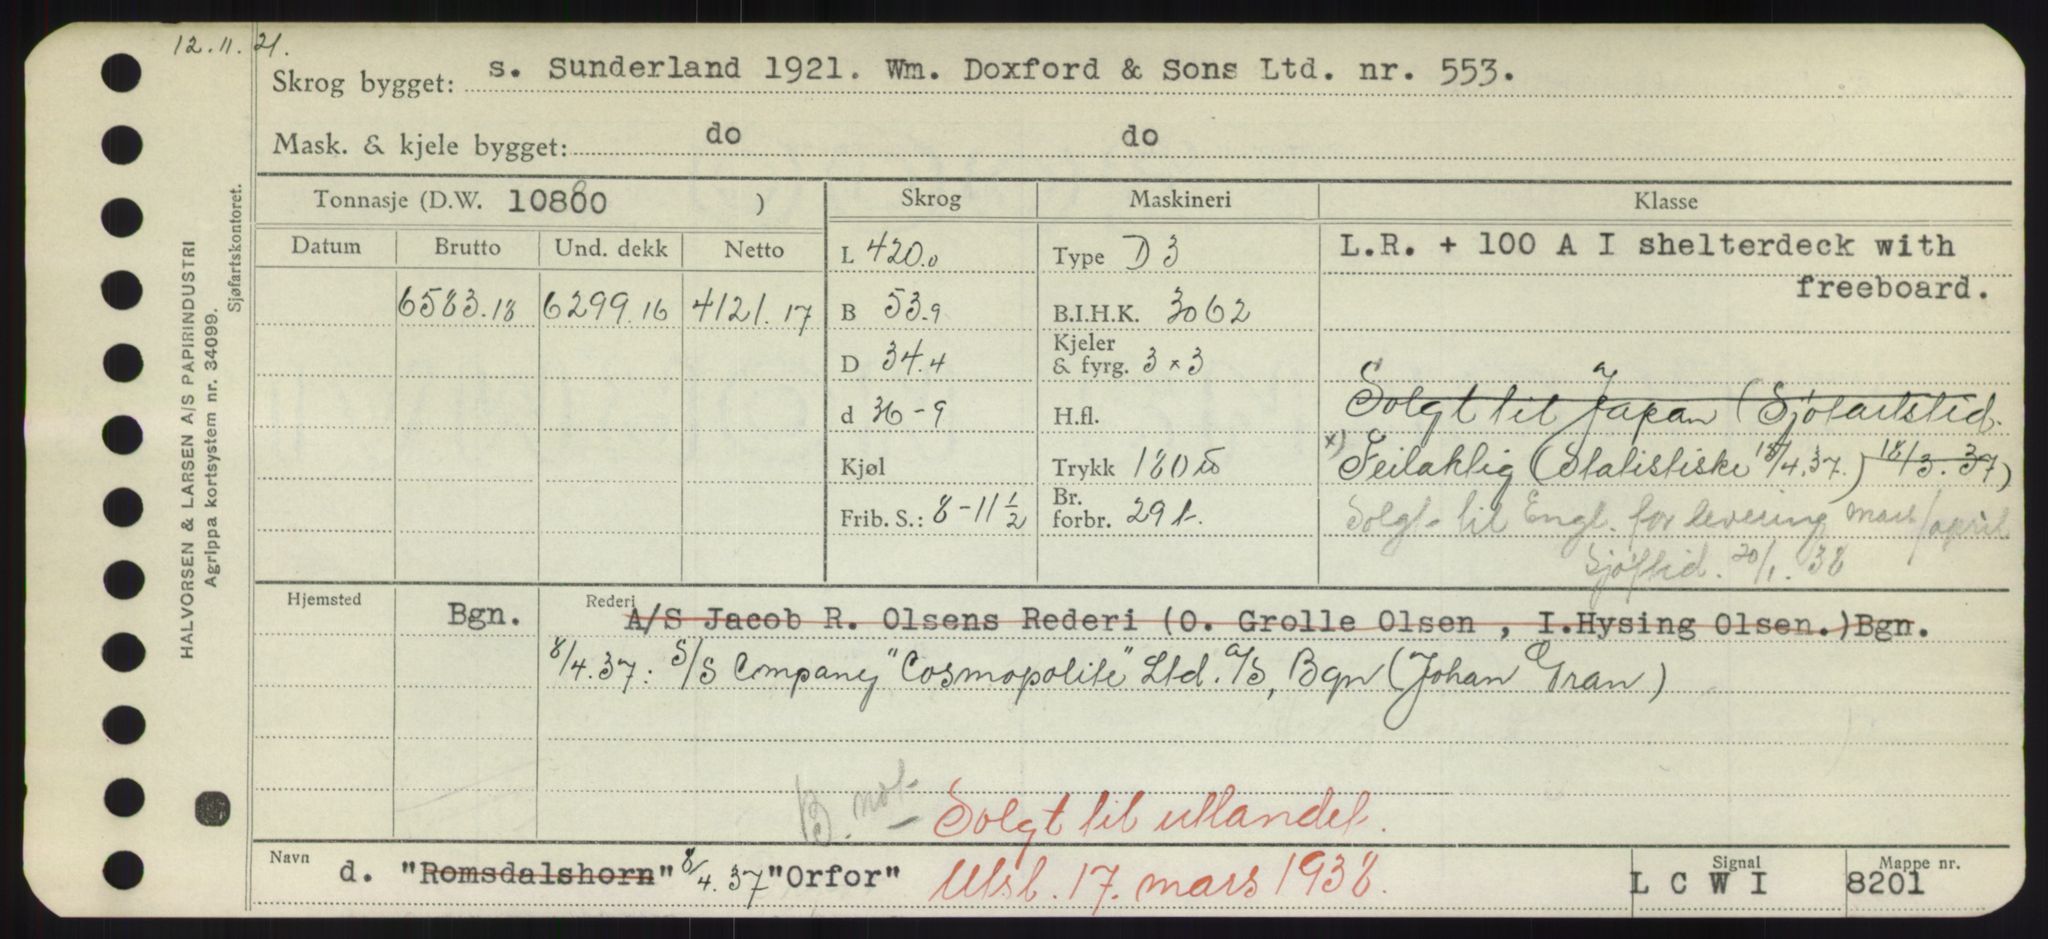 12.11.21.
Skrog bygget: s. Sunderland 1921. Wm. Doxford & Sons Ltd. nr. 553.
Mask. & kjele bygget: do do
Tonnasje (D.W. 10800 )
Skrog
Maskineri
Klasse
Datum Brutto Und. dekk Netto
6583.18 6299.16 4121.17
L 420.0
B 53.9
D 34.4
d 36-9
Kjøl
Frib. S.: 8-11 1/2
Type D 3
B.I.H.K. 3062
Kjeler
& fyrg. 3 x 3
H.fl.
Trykk 180 lb
Br.
forbr. 29 t.
L.R. + 100 A I shelterdeck with
freeboard.
Solgt til Japan (Sjöfartstid.
18/3.37)
x) Feilaktig (Statistiske 13/4.37.)
Solgt til Engl. for levering mars/april
Sjøftid. 20/1.38
Hjemsted Bgn.
Rederi A/S Jacob R. Olsens Rederi (O. Grolle Olsen , I.Hysing Olsen.)Bgn.
8/4.37: S/S Company "Cosmopolite" Ltd. A/S, Bgn (Johan Gran)
B. not.
Solgt til utlandet.
Navn d. "Romsdalshorn" 8/4.37 "Orfor"
Utsl. 17. mars 1938.
Signal L C W I
Mappe nr. 8201
HALVORSEN & LARSEN A/S PAPIRINDUSTRI
Agrippa kortsystem nr. 34099.
Sjøfartskontoret.